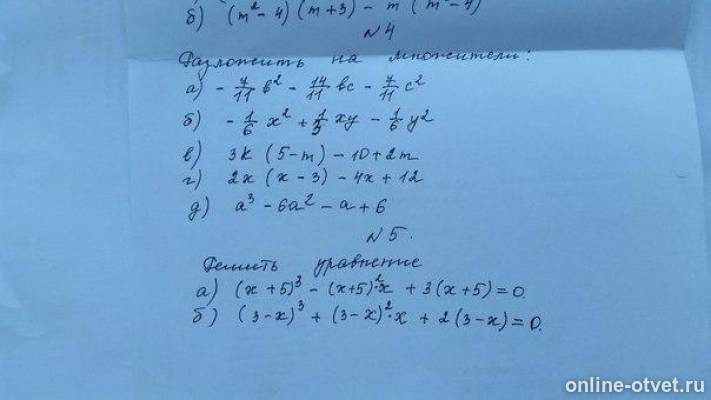 б) (m² - 4)(m + 3) - m (m² - 4)
№4
Разложить на множители:
а) - 7/11 b² - 14/11 bc - 7/11 c²
б) - 1/6 x² + 1/3 xy - 1/6 y²
в) 3k (5 - m) - 10 + 2m
г) 2x (x - 3) - 4x + 12
д) a³ - 6a² - a + 6
№5.
Решить уравнение
а) (x + 5)³ - (x + 5)²·x + 3(x + 5) = 0.
б) (3 - x)³ + (3 - x)²·x + 2(3 - x) = 0.
online-otvet.ru